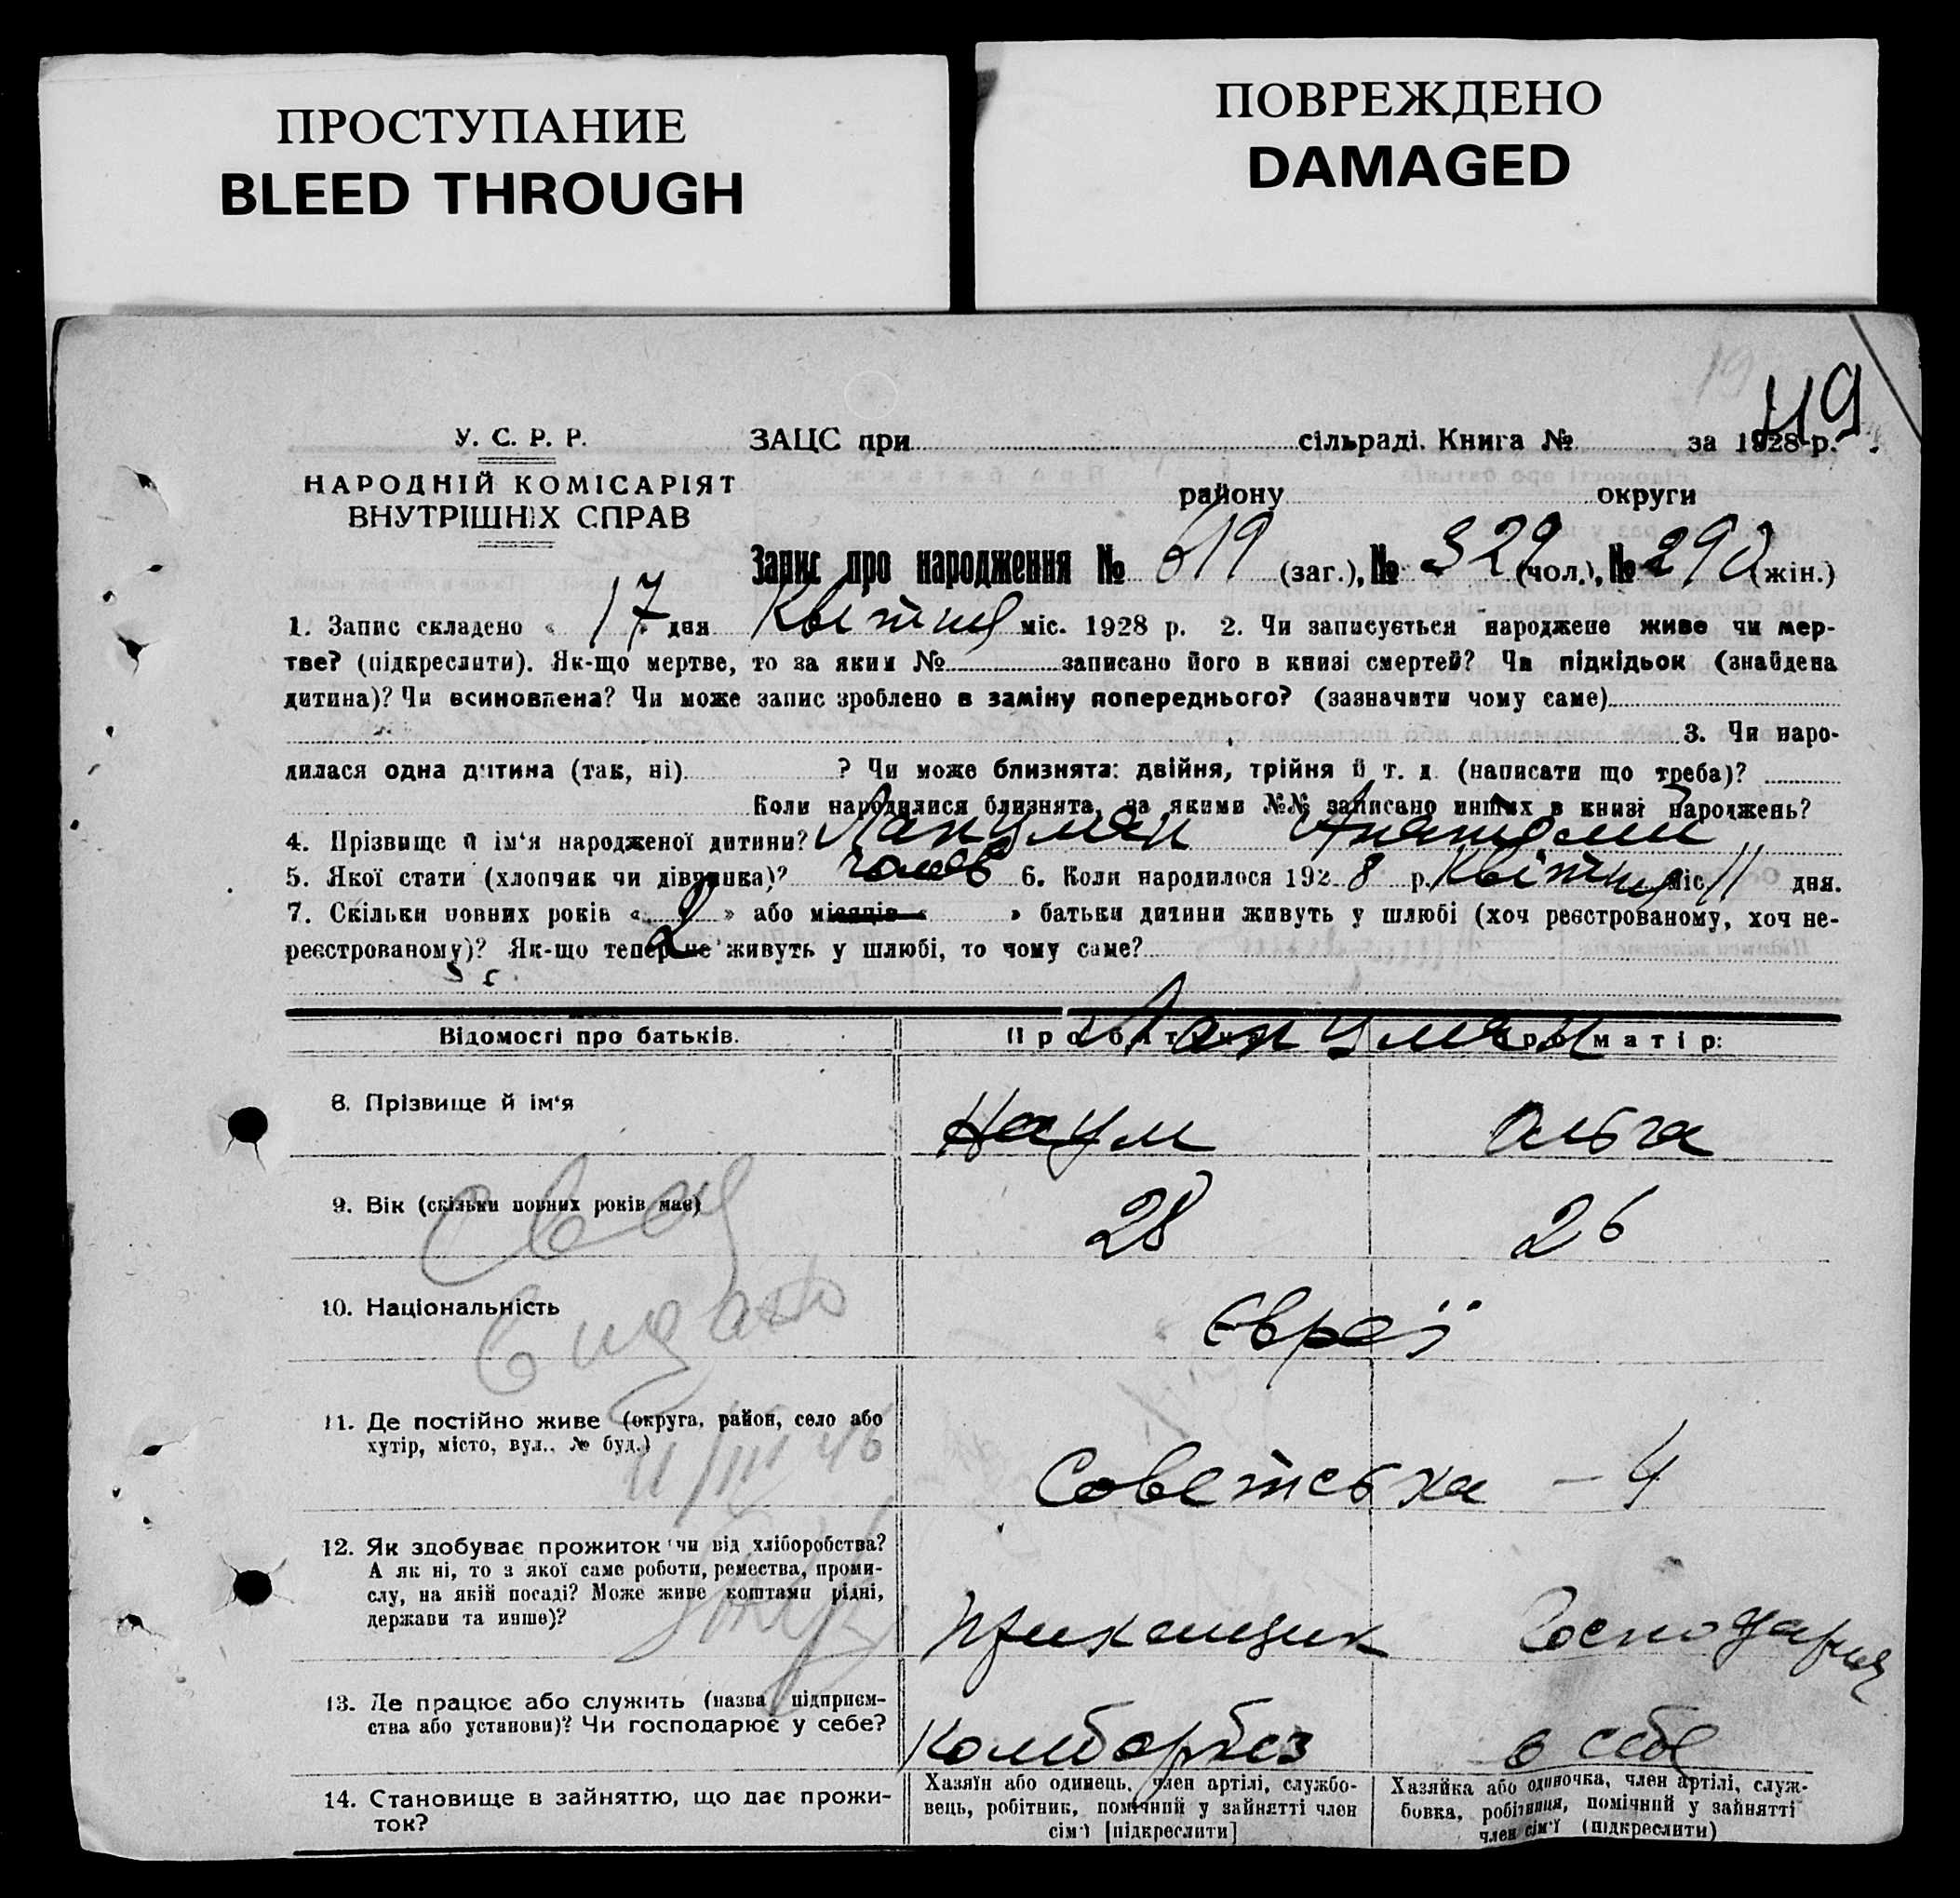 ПРОСТУПАНИЕ
BLEED THROUGH
ПОВРЕЖДЕНО
DAMAGED
19
119
У. С. Р. Р.
НАРОДНІЙ КОМІСАРІЯТ
ВНУТРІШНІХ СПРАВ
ЗАЦС при сільраді. Книга № за 1928 р.
району округи
Запис про народження № 619 (заг.), № 329 (чол.), № 290 (жін.)
1. Запис складено « 17 » дня Квітня міс. 1928 р. 2. Чи записується народжене живе чи мер-
тве? (підкреслити). Як-що мертве, то за яким № записано його в книзі смертей? Чи підкідьок (знайдена
дитина)? Чи всиновлена? Чи може запис зроблено в заміну попереднього? (зазначити чому саме)
3. Чи наро-
дилася одна дитина (так, ні) ? Чи може близнята: двійня, трійня й т. д. (написати що треба)?
Коли народилися близнята, за якими №№ записано инших в книзі народжень?
4. Прізвище й ім'я народженої дитини? Лапуман Анатоли
5. Якої стати (хлопчик чи дівчинка)? чолов 6. Коли народилося 192 8 р. Квітня міс. 11 дня.
7. Скільки повних років « 2 » або місяців « » батьки дитини живуть у шлюбі (хоч реєстрованому, хоч не-
реєстрованому)? Як-що тепер не живуть у шлюбі, то чому саме?
Відомості про батьків. Про батька: Про матір:
Лапуман
8. Прізвище й ім'я Наум Ольга
9. Вік (скільки повних років має) 28 26
10. Національність Євреї
Св ая
видано
11/III 46
11. Де постійно живе (округа, район, село або
хутір, місто, вул., № буд.)
Советська - 4
12. Як здобуває прожиток чи від хліборобства?
А як ні, то з якої саме роботи, ремества, проми-
слу, на якій посаді? Може живе коштами рідні,
держави та инше)?
Прикащик Господарня
13. Де працює або служить (назва підприєм-
ства або установи)? Чи господарює у себе?
Комборбез в себе
14. Становище в зайняттю, що дає прожи-
ток?
Хазяїн або одинець, член артілі, службо-
вець, робітник, помічний у зайнятті член
сім'ї [підкреслити]
Хазяйка або одиночка, член артілі, служ-
бовка, робітниця, помічний у зайнятті
член сім'ї (підкреслити)